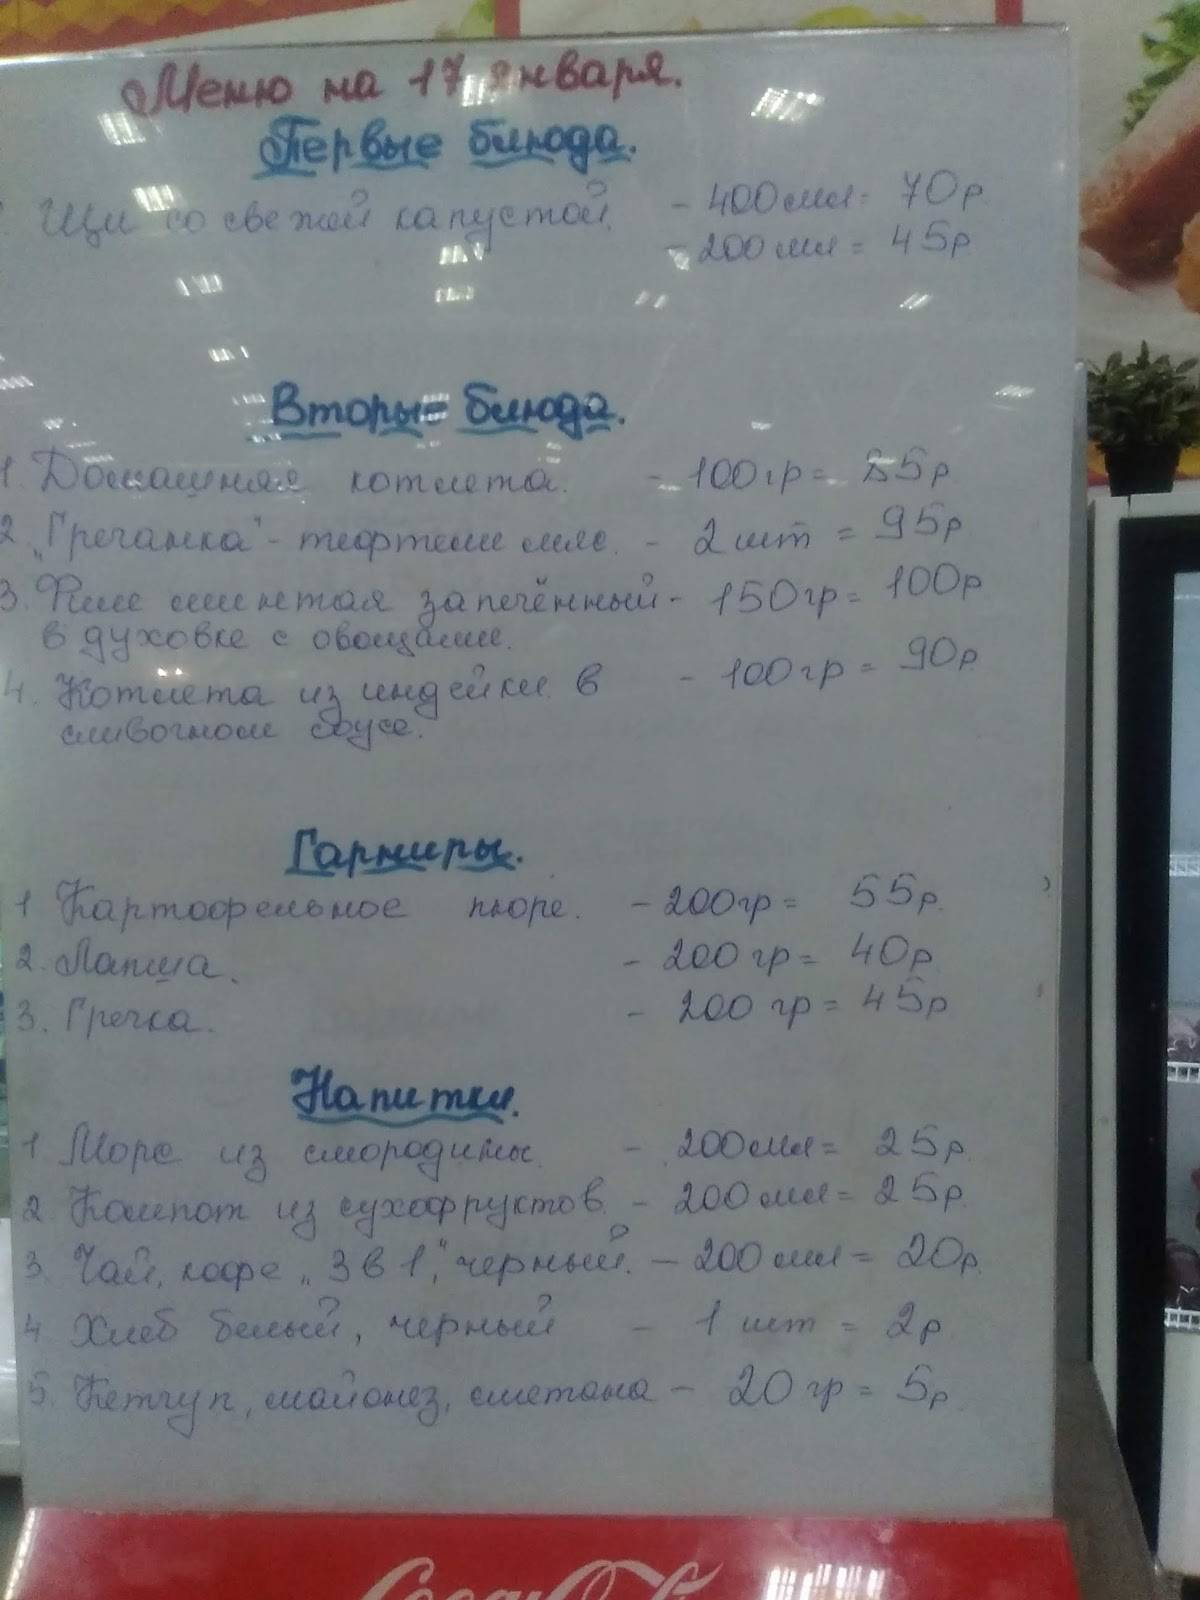 Меню на 17 января.
Первые блюда.
Щи со свежей капустой. - 400мл = 70р.
- 200 мл = 45р.
Вторые блюда.
1. Домашняя котлета. - 100гр = 85р.
2 „Гречанка" - тефтели мяс. - 2 шт = 95р.
3. Филе минтая запечённый - 150гр = 100р
в духовке с овощами.
4. Котлета из индейки в - 100гр = 90р.
сливочном соусе.
Гарниры.
1 Картофельное пюре. - 200гр = 55р.
2. Лапша. - 200 гр = 40р.
3. Гречка. - 200 гр = 45р
Напитки.
1 Морс из смородины. - 200мл = 25р.
2. Компот из сухофруктов. - 200 мл = 25р.
3. Чай, кофе „3 в 1", черный. - 200 мл = 20р.
4 Хлеб белый, черный - 1 шт = 2р
5. Кетчуп, майонез, сметана - 20 гр = 5р.
Coca-Cola